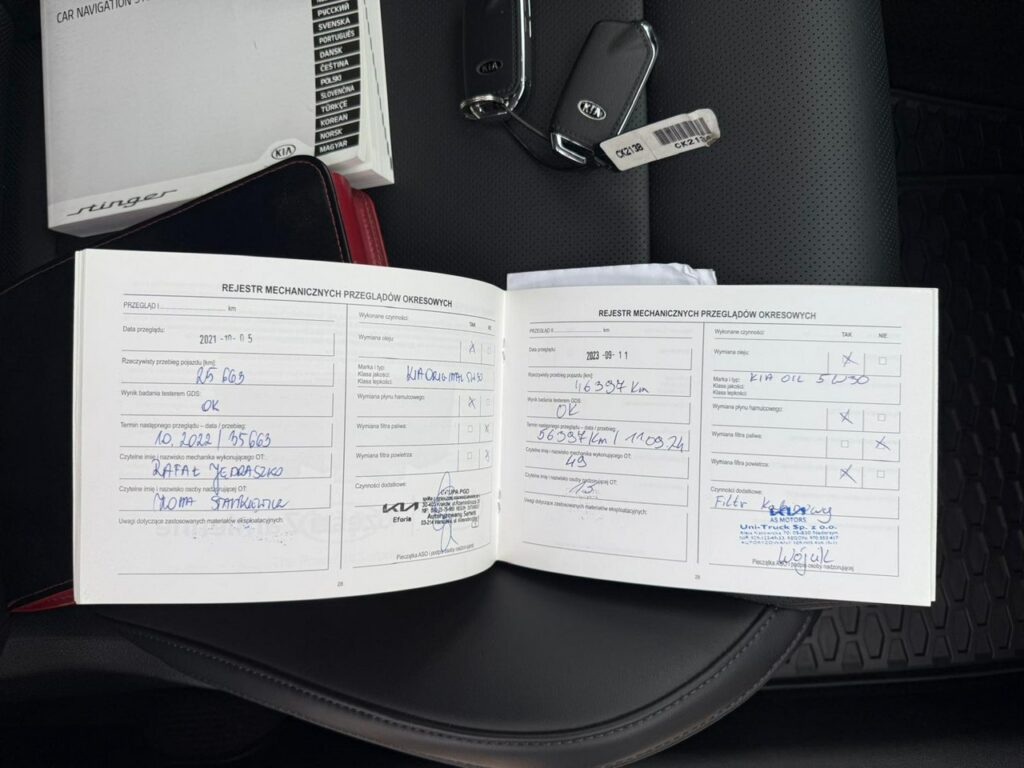 CAR NAVIGATION
РУССКИЙ
SVENSKA
PORTUGUÊS
DANSK
ČEŠTINA
POLSKI
SLOVENČINA
TÜRKÇE
KOREAN
NORSK
MAGYAR
KIA
stinger
KIA
KIA
CK2138
CK2138
REJESTR MECHANICZNYCH PRZEGLĄDÓW OKRESOWYCH
PRZEGLĄD I km
Data przeglądu:
2021-10-05
Rzeczywisty przebieg pojazdu [km]:
25 663
Wynik badania testerem GDS:
OK
Termin następnego przeglądu – data / przebieg:
10.2022 / 35663
Czytelne imię i nazwisko mechanika wykonującego OT:
RAFAŁ JĘDRASZKO
Czytelne imię i nazwisko osoby nadzorującej OT:
STANKIEWICZ
Uwagi dotyczące zastosowanych materiałów eksploatacyjnych:
Wykonane czynności: TAK NIE
Wymiana oleju: X
Marka i typ:
Klasa jakości:
Klasa lepkości:
KIA ORIGINAL 5W30
Wymiana płynu hamulcowego: X
Wymiana filtra paliwa: X
Wymiana filtra powietrza: X
Czynności dodatkowe:
KIA
Eforia
GRUPA PGD
Autoryzowany Serwis
Pieczątka ASO i podpis osoby nadzorującej
28
REJESTR MECHANICZNYCH PRZEGLĄDÓW OKRESOWYCH
PRZEGLĄD II km
Data przeglądu:
2023-09-11
Rzeczywisty przebieg pojazdu [km]:
46397 km
Wynik badania testerem GDS:
OK
Termin następnego przeglądu – data / przebieg:
56397 km / 11.09.24
Czytelne imię i nazwisko mechanika wykonującego OT:
49
Czytelne imię i nazwisko osoby nadzorującej OT:
13
Uwagi dotyczące zastosowanych materiałów eksploatacyjnych:
Wykonane czynności: TAK NIE
Wymiana oleju: X
Marka i typ:
Klasa jakości:
Klasa lepkości:
KIA OIL 5W30
Wymiana płynu hamulcowego: X
Wymiana filtra paliwa: X
Wymiana filtra powietrza: X
Czynności dodatkowe:
Filtr Kabinowy
KIA
AS MOTORS
Uni-Truck Sp. z o.o.
Wójcik
Pieczątka ASO i podpis osoby nadzorującej
29